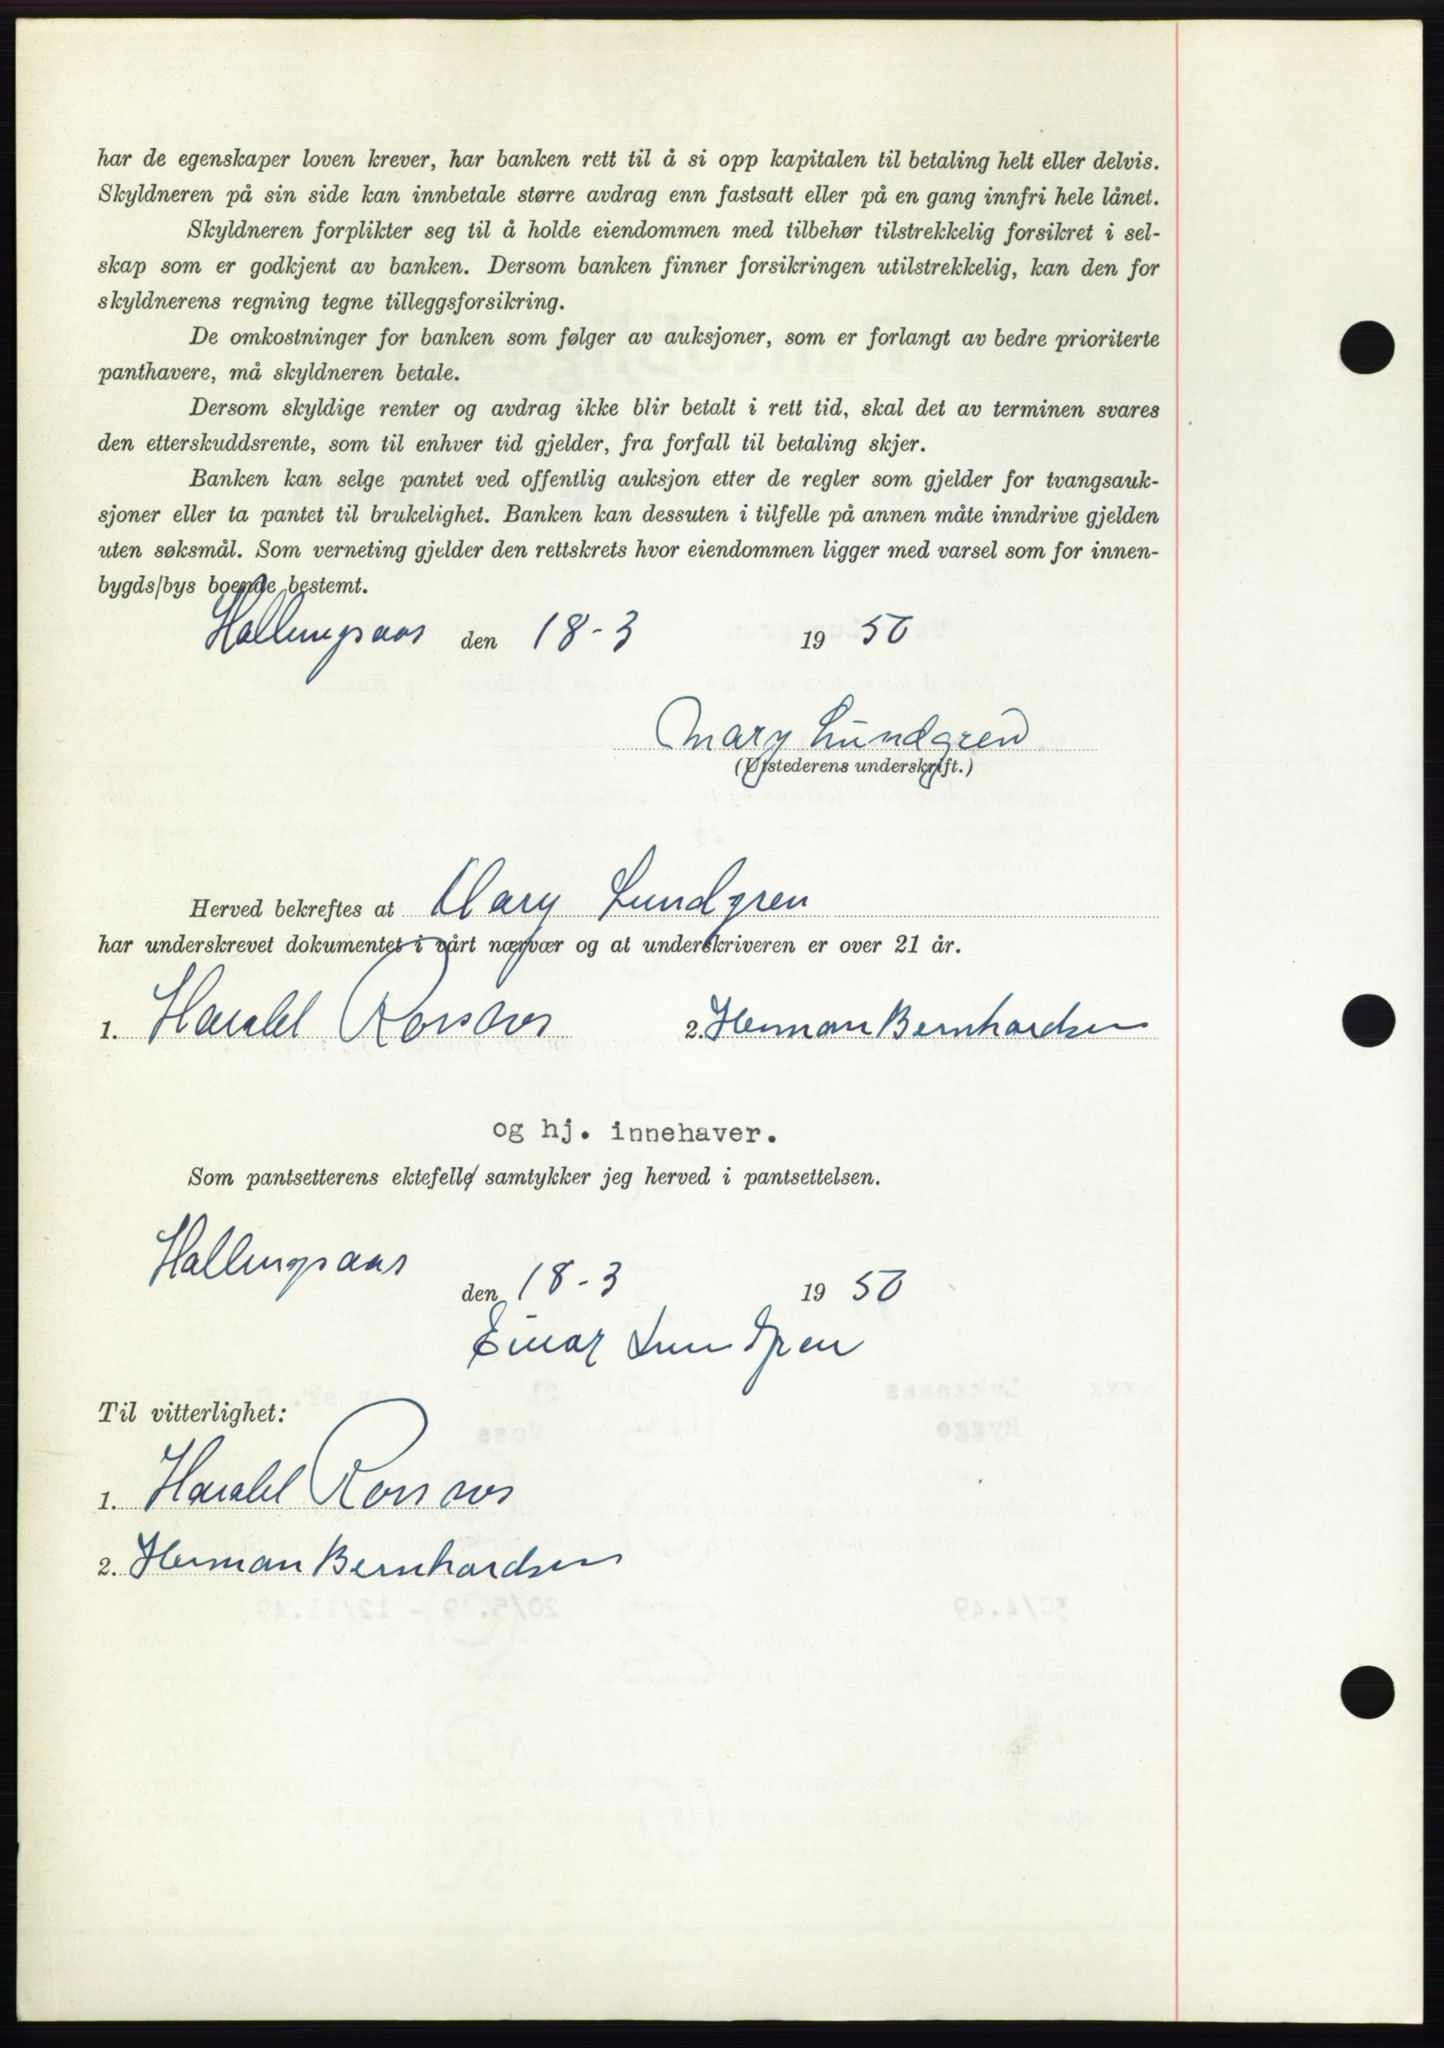 har de egenskaper loven krever, har banken rett til å si opp kapitalen til betaling helt eller delvis.
Skyldneren på sin side kan innbetale større avdrag enn fastsatt eller på en gang innfri hele lånet.
Skyldneren forplikter seg til å holde eiendommen med tilbehør tilstrekkelig forsikret i sel-
skap som er godkjent av banken. Dersom banken finner forsikringen utilstrekkelig, kan den for
skyldnerens regning tegne tilleggsforsikring.
De omkostninger for banken som følger av auksjoner, som er forlangt av bedre prioriterte
panthavere, må skyldneren betale.
Dersom skyldige renter og avdrag ikke blir betalt i rett tid, skal det av terminen svares
den etterskuddsrente, som til enhver tid gjelder, fra forfall til betaling skjer.
Banken kan selge pantet ved offentlig auksjon etter de regler som gjelder for tvangsauk-
sjoner eller ta pantet til brukelighet. Banken kan dessuten i tilfelle på annen måte inndrive gjelden
uten søksmål. Som verneting gjelder den rettskrets hvor eiendommen ligger med varsel som for innen-
bygds/bys boende bestemt.
Hallingsaas den 18-3 19 50
Mary Lundgren
(Utstederens underskrift.)
Herved bekreftes at Mary Lundgren
har underskrevet dokumentet i vårt nærvær og at underskriveren er over 21 år.
1. Harald 2. Herman Bernhardsen
og hj. innehaver.
Som pantsetterens ektefelle samtykker jeg herved i pantsettelsen.
Hallingsaas
den 18-3 19 50
Einar Lundgren
Til vitterlighet:
1. Harald
2. Herman Bernhardsen